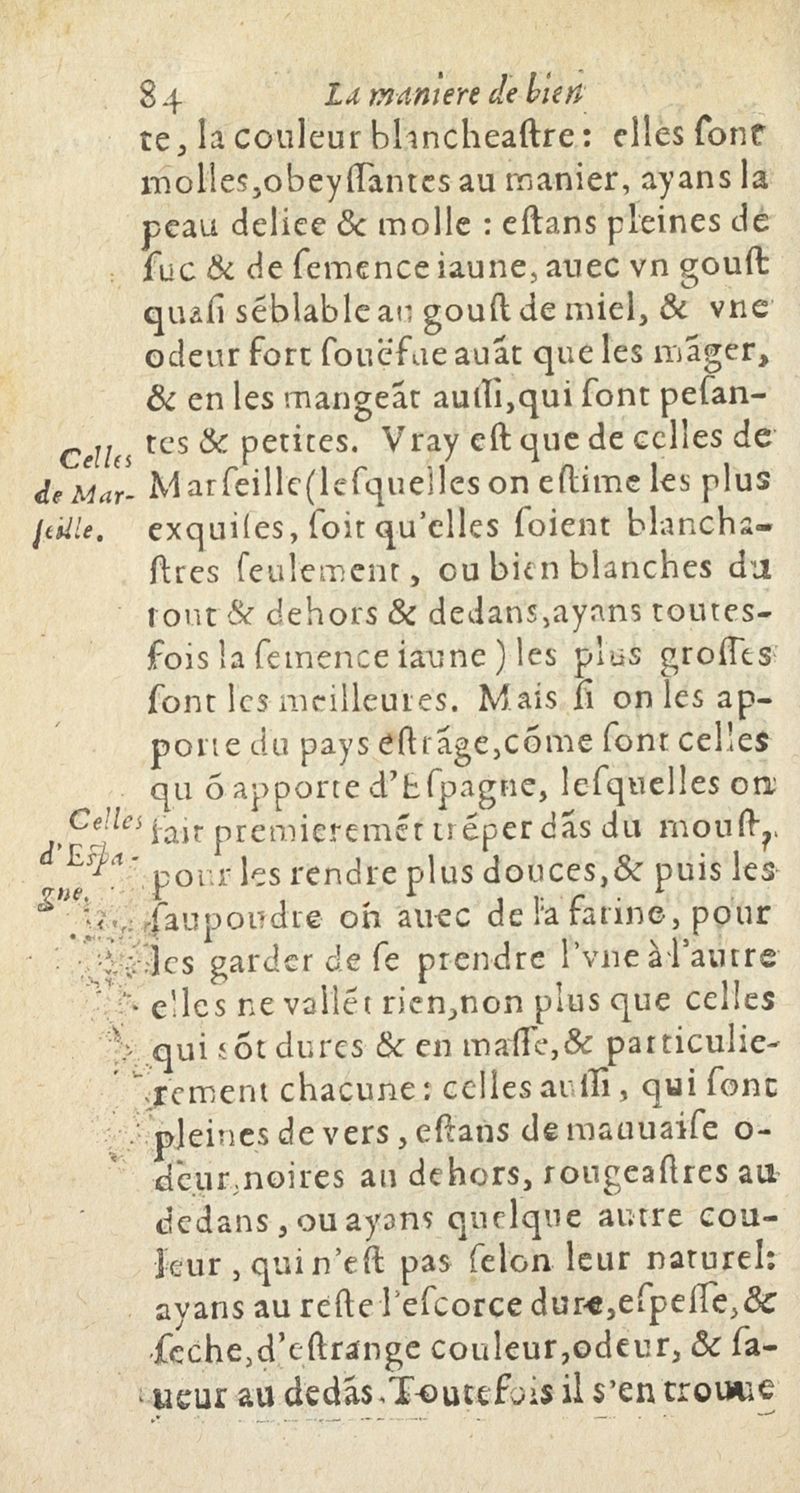 84 La maniere de bien
te, la couleur blancheaſtre: elles ſont
molles,obeyſſantes au manier, ayans la
peau deliee & molle : eſtans pleines de
ſuc & de ſemence iaune, auec vn gouſt
quaſi sẽblable au gouſt de miel, & vne
odeur fort ſouëfue auãt que les mãger,
& en les mangeãt auſſi,qui ſont peſan-
tes & petites. Vray eſt que de celles de
Celles
de Mar-
ſeille.
Marſeille(leſquelles on eſtime les plus
exquiſes, ſoit qu'elles ſoient blancha-
ſtres ſeulement, ou bien blanches du
tout & dehors & dedans,ayans toutes-
fois la ſemence iaune ) les plus groſſes
ſont les meilleures. Mais ſi on les ap-
porte du pays eſtrãge,cõme ſont celles
qu õ apporte d'Eſpagne, leſquelles on
Celles
d'Eſpa-
gne.
fait premieremẽt trẽper dãs du mouſt,
pour les rendre plus douces,& puis les
ſaupoudre on auec de la farine, pour
les garder de ſe prendre l'vne à l'autre
elles ne vallẽt rien,non plus que celles
qui sõt dures & en maſſe,& particulie-
rement chacune: celles auſſi, qui ſont
pleines de vers, eſtans de mauuaiſe o-
deur,noires au dehors, rougeaſtres au
dedans, ou ayans quelque autre cou-
leur, qui n'eſt pas ſelon leur naturel:
ayans au reſte l'eſcorce dure,eſpeſſe,&
ſeche,d'eſtrange couleur,odeur, & ſa-
ueur au dedãs.Toutefois il s'en trouue